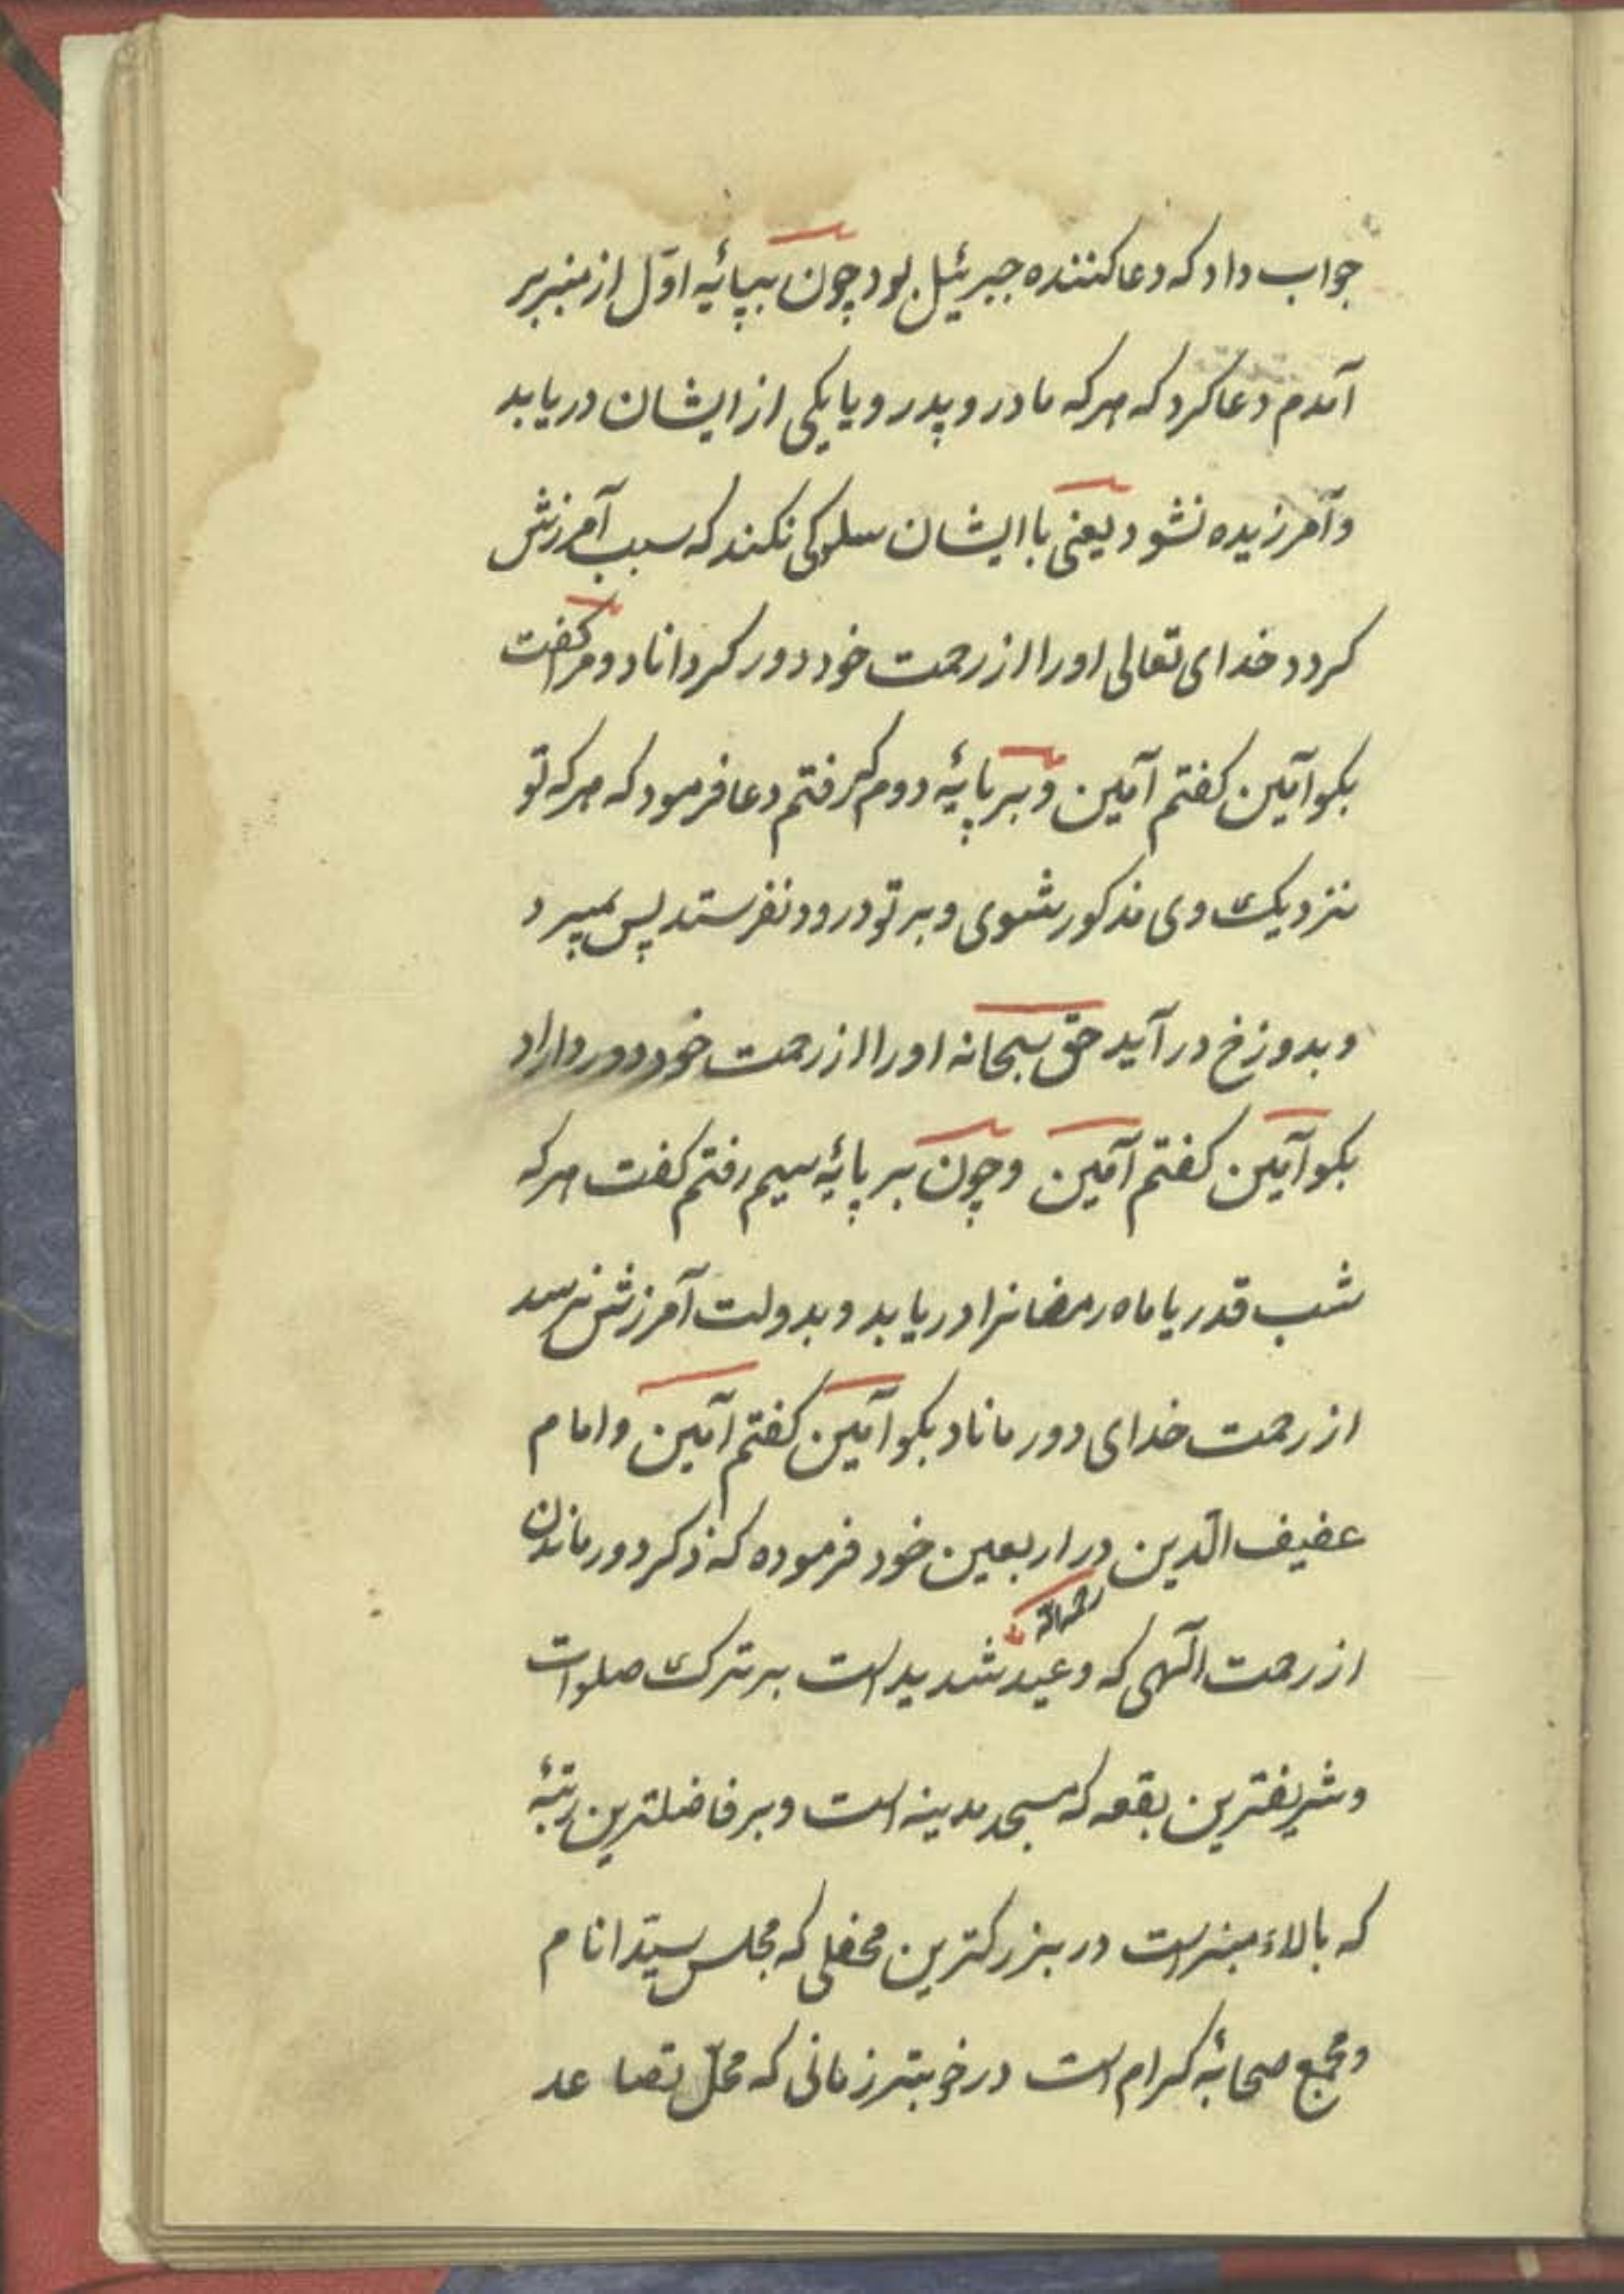 جواب داد که دعا کننده جبرئیل بود چون بپائیه اوّل از منبر بر
آمدم دعا کرد که هرکه مادر و پدر و یا یکی از ایشان دریابد
و آمرزیده نشود یعنی با ایشان سلوکی نکند که سبب آمرزش
کردد خدای تعالی اورا از رحمت خود دور کرداناد و مرا کفت
بکو آمین کفتم آمین و بر پایهٔ دوم کرفتم دعا فرمود که هرکه تو
نزدیک وی مذکور شوی و بر تو درود نفرستد پس بمیرد
و بدوزخ درآید حق سبحانه اورا از رحمت خود دور داراد
بکو آمین کفتم آمین و چون بر پایهٔ سیم رفتم کفت هرکه
شب قدر یا ماه رمضانرا دریابد و بدولت آمرزش نرسد
از رحمت خدای دور ماناد بکو آمین کفتم آمین و امام
عفیف الدّین در اربعین خود فرموده که ذکر دور ماندن
رحمه الله
از رحمت آلهی که وعید شدید است بر ترک صلوات
و شریفترین بقعه که مسجد مدینه است و بر فاضلترین رتبهٔ
که بالاء منبر است در بزرکترین محفلی که مجلس سیّد انام
و مجمع صحابهٔ کرام است در خوبتر زمانی که محلّ تصاعد